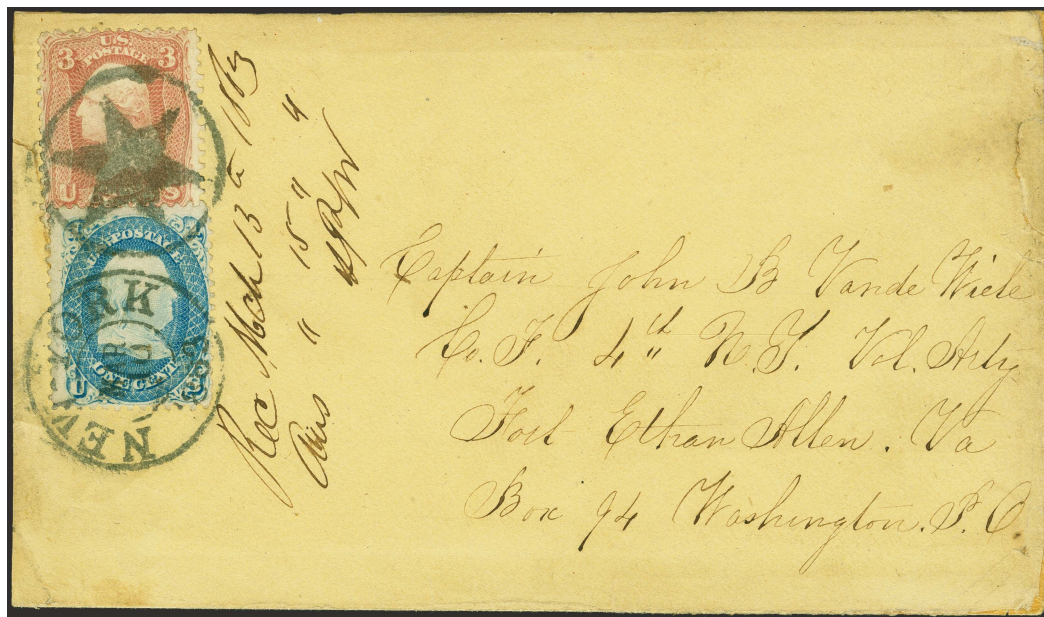 U.S.
POSTAGE
3 3
U S
U.S. POSTAGE
ONE CENT
U
NEW YORK
MAR
Rec Mch 13 1863
Ans " 15 "
Captain John B Vande Wiele
Co. F. 4th N.Y. Vol. Arty
Fort Ethan Allen. Va
Box 94 Washington. P. O.